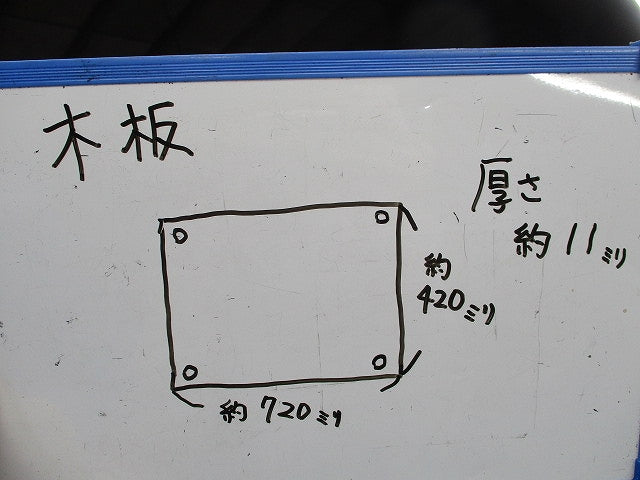 木板
厚さ
約11ミリ
約
420ミリ
約720ミリ